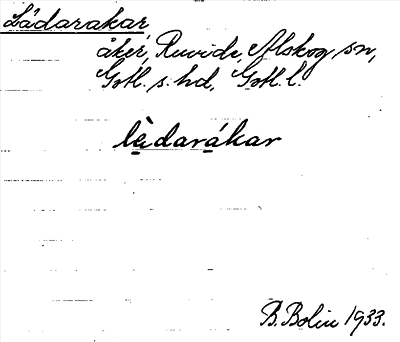 Lådarakar
åker, Ruvide, Alskog sn,
Gotl. s. hd, Gotl. l.
lèdarákar
B. Bolin 1933.